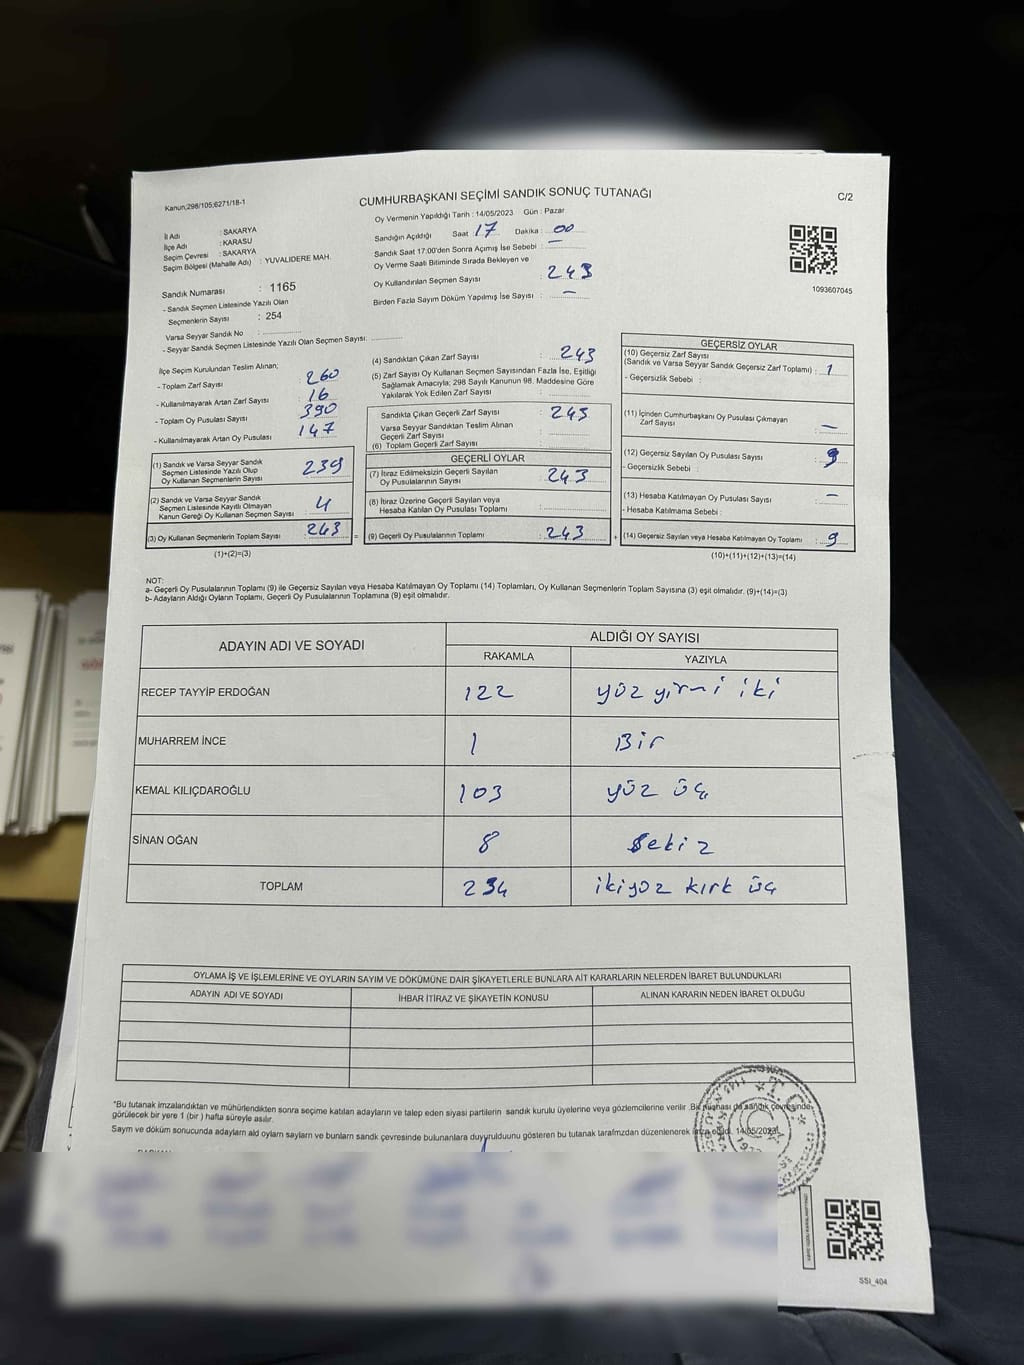 Kanun;298/105;6271/18-1
CUMHURBAŞKANI SEÇİMİ SANDIK SONUÇ TUTANAĞI
C/2
Oy Vermenin Yapıldığı Tarih : 14/05/2023 Gün : Pazar
İl Adı : SAKARYA
İlçe Adı : KARASU
Seçim Çevresi : SAKARYA
Seçim Bölgesi (Mahalle Adı) : YUVALIDERE MAH.
Sandığın Açıldığı Saat 17 Dakika : 00
Sandık Saat 17.00'den Sonra Açımış İse Sebebi : —
Oy Verme Saati Bitiminde Sırada Bekleyen ve
Oy Kullandırılan Seçmen Sayısı : 243
Birden Fazla Sayım Döküm Yapılmış İse Sayısı : —
1093607045
Sandık Numarası : 1165
- Sandık Seçmen Listesinde Yazılı Olan
Seçmenlerin Sayısı : 254
Varsa Seyyar Sandık No :
- Seyyar Sandık Seçmen Listesinde Yazılı Olan Seçmen Sayısı:
İlçe Seçim Kurulundan Teslim Alınan;
- Toplam Zarf Sayısı : 260
- Kullanılmayarak Artan Zarf Sayısı : 16
- Toplam Oy Pusulası Sayısı : 390
- Kullanılmayarak Artan Oy Pusulası : 147
(1) Sandık ve Varsa Seyyar Sandık
Seçmen Listesinde Yazılı Olup
Oy Kullanan Seçmenlerin Sayısı : 239
(2) Sandık ve Varsa Seyyar Sandık
Seçmen Listesinde Kayıtlı Olmayan
Kanun Gereği Oy Kullanan Seçmen Sayısı : 4
(3) Oy Kullanan Seçmenlerin Toplam Sayısı : 243 =
(1)+(2)=(3)
(4) Sandıktan Çıkan Zarf Sayısı : 243
(5) Zarf Sayısı Oy Kullanan Seçmen Sayısından Fazla İse, Eşitliği
Sağlamak Amacıyla; 298 Sayılı Kanunun 98. Maddesine Göre
Yakılarak Yok Edilen Zarf Sayısı :
Sandıkta Çıkan Geçerli Zarf Sayısı : 243
Varsa Seyyar Sandıktan Teslim Alınan
Geçerli Zarf Sayısı :
(6) Toplam Geçerli Zarf Sayısı :
GEÇERLİ OYLAR
(7) İtiraz Edilmeksizin Geçerli Sayılan
Oy Pusulalarının Sayısı : 243
(8) İtiraz Üzerine Geçerli Sayılan veya
Hesaba Katılan Oy Pusulası Toplamı :
(9) Geçerli Oy Pusulalarının Toplamı : 243 +
GEÇERSİZ OYLAR
(10) Geçersiz Zarf Sayısı
(Sandık ve Varsa Seyyar Sandık Geçersiz Zarf Toplamı) : 1
- Geçersizlik Sebebi :
(11) İçinden Cumhurbaşkanı Oy Pusulası Çıkmayan
Zarf Sayısı : —
(12) Geçersiz Sayılan Oy Pusulası Sayısı : 9
- Geçersizlik Sebebi :
(13) Hesaba Katılmayan Oy Pusulası Sayısı : —
- Hesaba Katılmama Sebebi :
(14) Geçersiz Sayılan veya Hesaba Katılmayan Oy Toplamı : 9
(10)+(11)+(12)+(13)=(14)
NOT:
a- Geçerli Oy Pusulalarının Toplamı (9) ile Geçersiz Sayılan veya Hesaba Katılmayan Oy Toplamı (14) Toplamları, Oy Kullanan Seçmenlerin Toplam Sayısına (3) eşit olmalıdır. (9)+(14)=(3)
b- Adayların Aldığı Oyların Toplamı, Geçerli Oy Pusulalarının Toplamına (9) eşit olmalıdır.
ADAYIN ADI VE SOYADI
ALDIĞI OY SAYISI
RAKAMLA YAZIYLA
RECEP TAYYİP ERDOĞAN 122 yüz yirmi iki
MUHARREM İNCE 1 Bir
KEMAL KILIÇDAROĞLU 103 yüz üç
SİNAN OĞAN 8 Sekiz
TOPLAM 234 ikiyüz kırk üç
OYLAMA İŞ VE İŞLEMLERİNE VE OYLARIN SAYIM VE DÖKÜMÜNE DAİR ŞİKAYETLERLE BUNLARA AİT KARARLARIN NELERDEN İBARET BULUNDUKLARI
ADAYIN ADI VE SOYADI İHBAR İTİRAZ VE ŞİKAYETİN KONUSU ALINAN KARARIN NEDEN İBARET OLDUĞU
"Bu tutanak imzalandıktan ve mühürlendikten sonra seçime katılan adayların ve talep eden siyasi partilerin sandık kurulu üyelerine veya gözlemcilerine verilir .Bir nüshası da sandık çevresinde
görülecek bir yere 1 (bir ) hafta süreyle asılır.
Saym ve döküm sonucunda adaylarn ald oylarn saylarn ve bunlarn sandk çevresinde bulunanlara duyrulduunu gösteren bu tutanak tarafmzdan düzenlenerek imza edildi. 14/05/2023
SSI_404